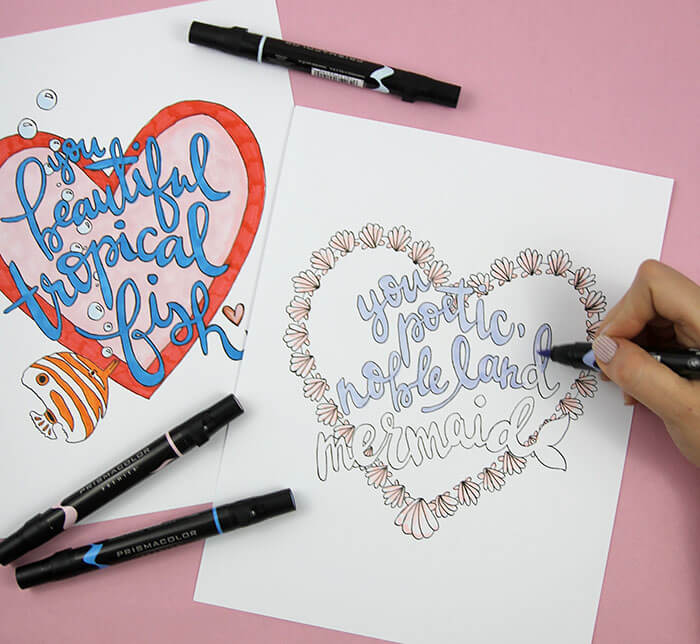 you
beautiful
tropical
fish
you
poetic,
noble land
mermaid
PRISMACOLOR
PREMIER
PRISMACOLOR